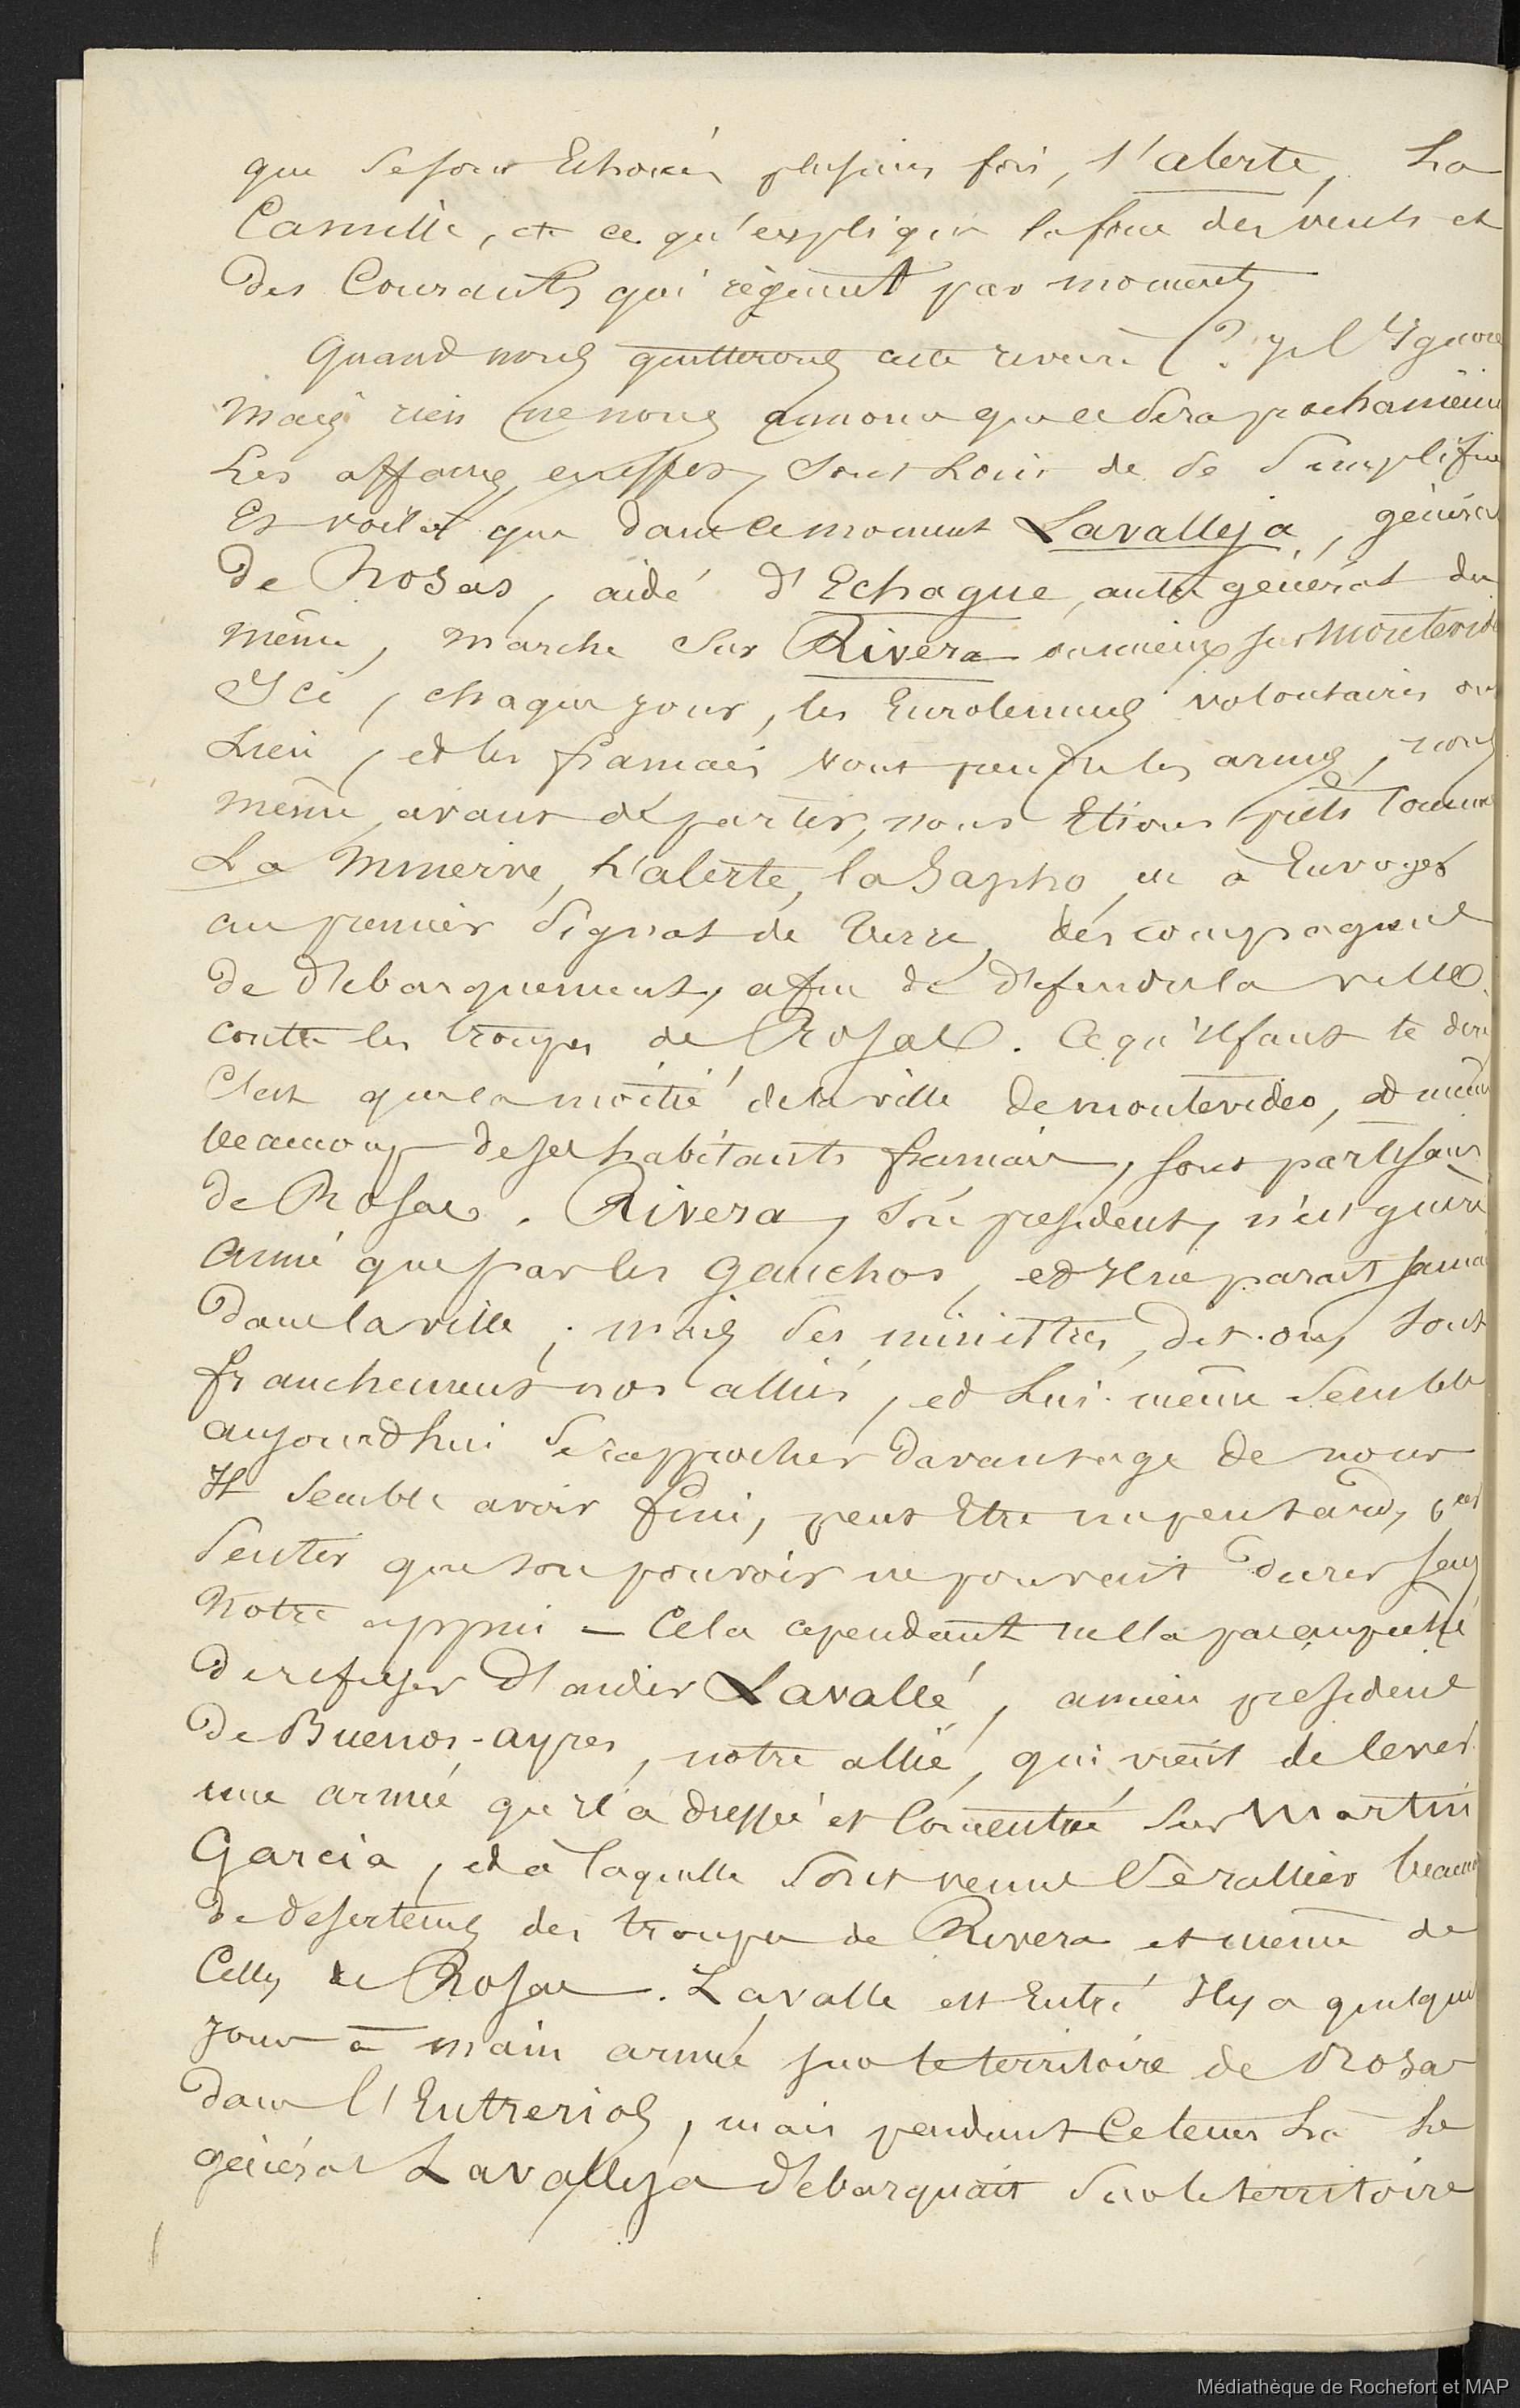 que se sont Echouées plusieurs fois, l'alerte, La
Camille, et ce qu'explique la force des vents et
Des Courants qui règnent par moments
Quand nous quitterons cette rivière ? Je l'Ignore
Mais rien ne nous annonce que ce sera prochainem
Les affaires, en effet, sont Loin de se simplifier
Et voilà que dans ce moment Lavalleja, général
De Rosas, aidé d'Echague, autre général du
Même, Marche sur Rivera ou mieux sur Montevide
Ici, chaque jour, les Enrolements volontaires on
Lieu, et les français vont prendre les armes, nous
Même, avant de partir, nous Etions prets comme
La Minerve, L'alerte, la Sapho, à Envoyer
au premier Signal de terre, des compagnies
De débarquement, afin de défendre la ville
contre les troupes de Rosas. Ce qu'il faut te dire
C'est que la moitié de la ville de montevideo, et même
beaucoup de ses habitants français, sont partisans
De Rosas. Rivera, son president, n'est guère
Aimé que par les Gauchos, et Il ne parait jamai
Dans la ville ; mais ses ministres, dit-on, sont
franchement nos alliés, et Lui-même semble
aujourd'hui se rapprocher Davantage de nous
Il Semble avoir fini, peut Etre un peu tard, par
Sentir que son pouvoir ne pouvait Durer sans
Notre appui — Cela cependant ne l'a pas empeché
De refuser D'aider Lavallé, ancien président
De Buenos-ayres, notre allié, qui vient de lever
une armée qu'Il a dressée et Concentrée sur Martin
Garcia, et à laquelle Sont venus Se rallier beauc
De deserteurs des troupes de Rivera et même de
Celles de Rosas. Lavalle est Entré Il y a quelque
Jours à main armée sur le territoire de Rosas
Dans l'Entrerios, mais pendant Ce temps Là Le
général Lavalleja débarquait Sur le territoire
Médiathèque de Rochefort et MAP